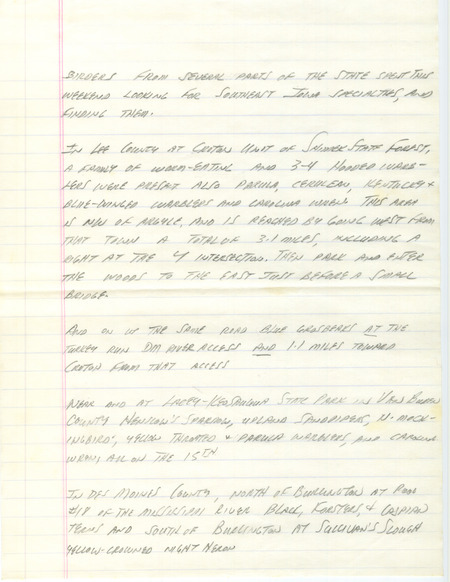 BIRDERS FROM SEVERAL PARTS OF THE STATE SPENT THIS
WEEKEND LOOKING FOR SOUTHEAST IOWA SPECIALTIES, AND
FINDING THEM.
IN LEE COUNTY AT CROTON UNIT OF SHIMEK STATE FOREST,
A FAMILY OF WORM-EATING AND 3-4 HOODED WARB-
LERS WERE PRESENT ALSO PARULA, CERULEAN, KENTUCKY +
BLUE-WINGED WARBLERS AND CAROLINA WREN. THIS AREA
IS N/W OF ARGYLE, AND IS REACHED BY GOING WEST FROM
THAT TOWN A TOTAL OF 3.1 MILES, INCLUDING A
RIGHT AT THE Y INTERSECTION. THEN PARK AND ENTER
THE WOODS TO THE EAST JUST BEFORE A SMALL
BRIDGE.
AND ON THE SAME ROAD BLUE GROSBEAKS AT THE
TURKEY RUN DM RIVER ACCESS AND 1.1 MILES TOWARD
CROTON FROM THAT ACCESS
NEAR AND AT LACEY-KEOSAUQUA STATE PARK IN VAN BUREN
COUNTY HENSLOW'S SPARROW, UPLAND SANDPIPERS, N. MOCK-
INGBIRD, YELLOW THROATED + PARULA WARBLERS, AND CAROLINA
WREN; ALL ON THE 15TH
IN DES MOINES COUNTY, NORTH OF BURLINGTON AT POOL
#18 OF THE MISSISSIPPI RIVER BLACK, FORSTERS, + CASPIAN
TERNS AND SOUTH OF BURLINGTON AT SULLIVAN'S SLOUGH
YELLOW-CROWNED NIGHT HERON